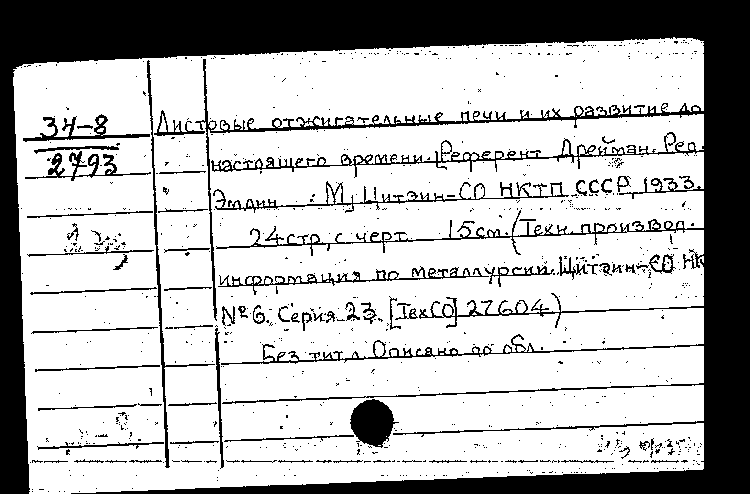 34-8 Листовые отжигательные печи и их развитие до
2793 настоящего времени. [Референт Дрейман. Ред.
Эмдин. М., Цитэин-СО НКТП СССР, 1933.
24 стр., с черт. 15 см. (Техн. производ.
информация по металлурсии. Цитэин-СО НК
№ 6. Серия 23. [ТехСО] 27604)
Без тит. л. Описано по обл.